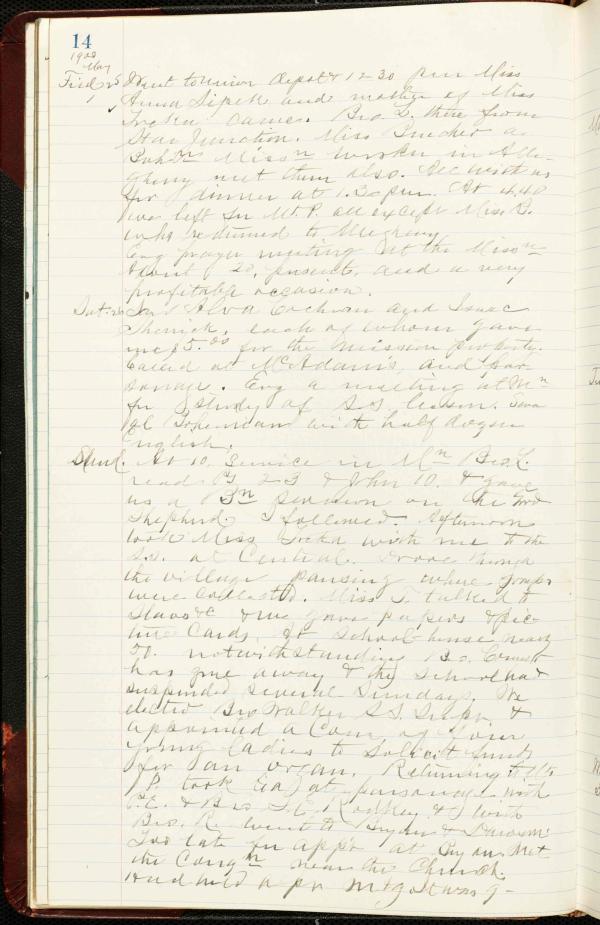 14
1900
May
Frid 25 Went to Union depot & 12-30 pm Miss
Anna and mother of Miss
came. Bro L. there from
Star Junction. Miss a
Boh'n Miss'n worker in Alle-
gheny met them also. All with us
for dinner at 1.30 pm. At 4.40
we left for Mt P. all except Miss B.
who returned to Allegheny
Evg prayer meeting at the Miss'n
About 20, present, and a very
profitable occasion.
Sat. 26 Alva Cochran and Isaac
Sherrick, each of whom gave
me $5.00 for the mission property.
Called at McAdam's and par-
sonage. Evg a meeting at M'n
for study of S.S. lesson. Sev-
eral Bohemians with half dozen
English.
Sund. At 10. Service in M'n Bro. L.
read Ps 23 & John 10. & gave
us a B'n sermon on the Good
Shepherd I followed. Afternoon
took Miss with me to the
S.S. at Central. Drove through
the village pausing where groups
were collected. Miss T. talked to
Slavs &c & we gave papers & pic-
ture Cards. At School-house nearly
50. notwithstanding Bro.
has gone away & the School had
suspended several Sundays. We
elected Bro Walker S.S. Supr. &
appointed a Com. of four
young ladies to solicit funds
for an organ. Returning to Mt
P. took tea at parsonage with
P.E. & Bro S.E. Rodkey & with
Bro. R went to Bryan & Dawson
Too late for appt at Bryan. Met
the Cong'n near the Church.
Had held a pr mtg. It was 9-